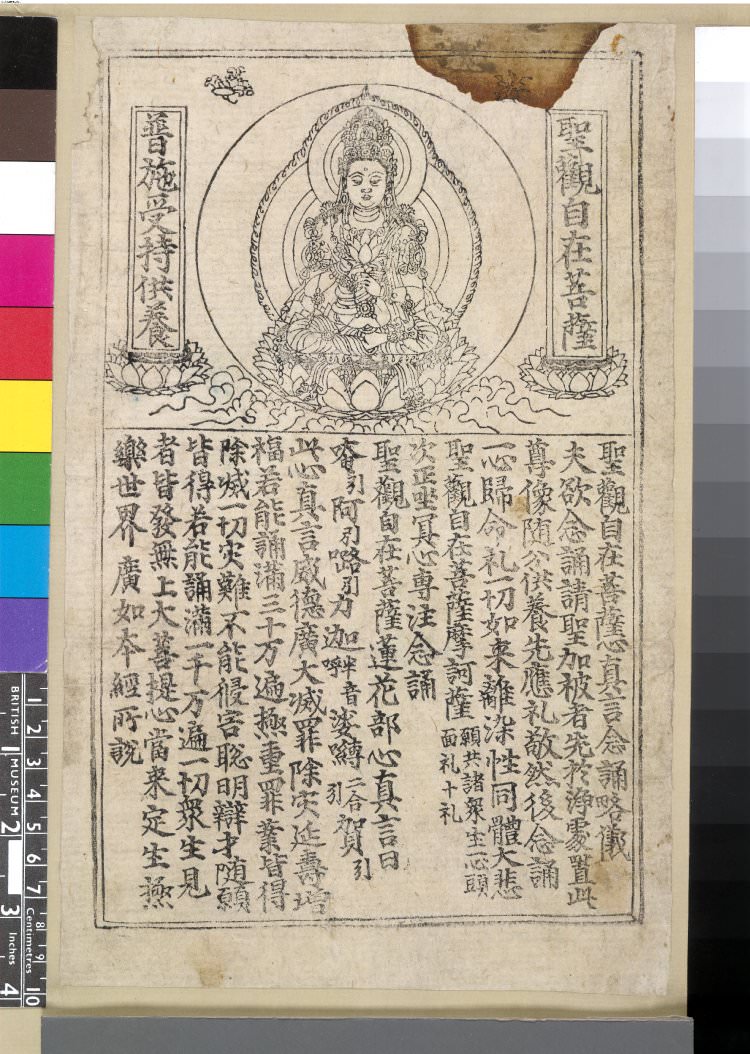 聖觀自在菩薩
普施受持供養
聖觀自在菩薩心真言念誦略儀
夫欲念誦請聖加被者先於淨處置此
尊像随分供養先應礼敬然後念誦
一心歸命礼一切如来離染性同體大悲
聖觀自在菩薩摩訶薩願共諸衆生一心頭面礼十礼
次正坐冥心專注念誦
聖觀自在菩薩蓮花部心真言曰
唵引阿引嚕引力迦半音呼娑嚩二合引賀引
此心真言威德廣大滅罪除灾延壽增
福若能誦滿三十万遍極重罪業皆得
除滅一切灾難不能侵害聡明辯才随願
皆得若能誦滿一千万遍一切衆生見
者皆發無上大菩提心當来定生極
樂世界廣如本經所說
BRITISH MUSEUM
1 2 3 4 5 6 7 8 9 10
Centimetres
1 2 3 4
Inches